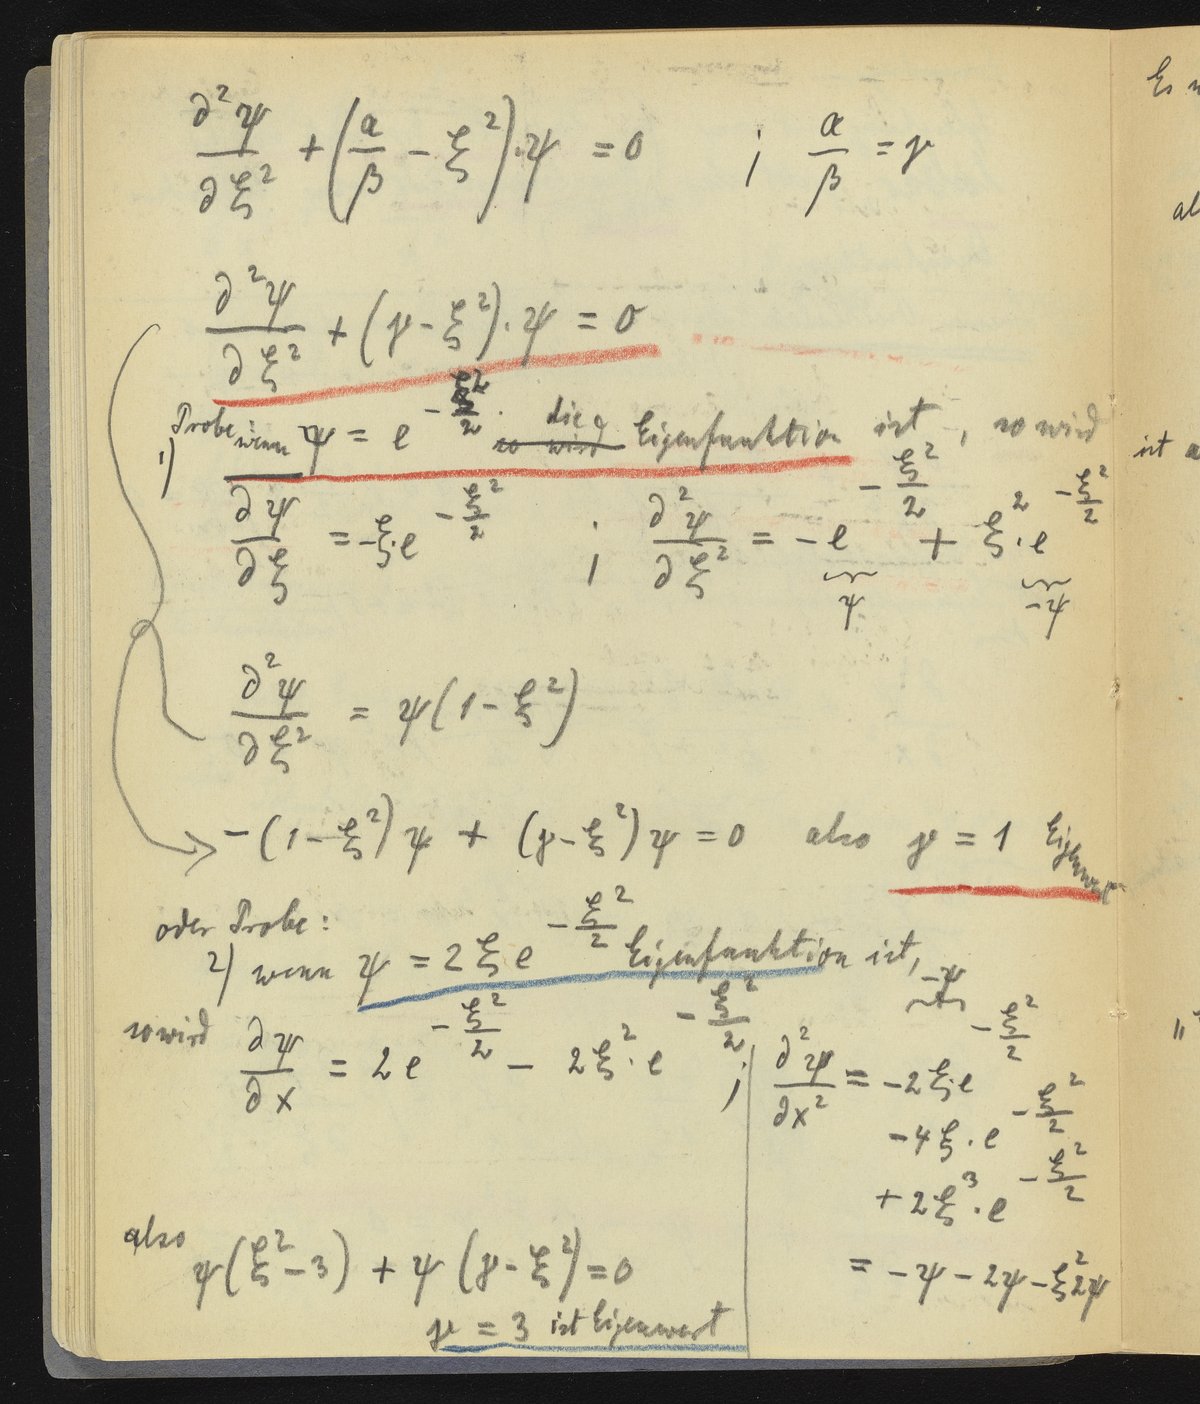 ∂²ψ/∂ξ² + (α/β − ξ²)·ψ = 0 ; α/β = γ
∂²ψ/∂ξ² + (γ − ξ²)·ψ = 0
Probe
1) wenn ψ = e^(−ξ²/2) so wird die Eigenfunktion ist, so wird
∂ψ/∂ξ = −ξ·e^(−ξ²/2) ; ∂²ψ/∂ξ² = −e^(−ξ²/2) + ξ²·e^(−ξ²/2)
ψ −ψ
∂²ψ/∂ξ² = ψ(1 − ξ²)
−(1 − ξ²)ψ + (γ − ξ²)ψ = 0 also γ = 1 Eigenwert
oder Probe:
2) wenn ψ = 2ξe^(−ξ²/2) Eigenfunktion ist,
−ψ
so wird ∂ψ/∂x = 2e^(−ξ²/2) − 2ξ²·e^(−ξ²/2) ; ∂²ψ/∂x² = −2ξ·e^(−ξ²/2)
−4ξ·e^(−ξ²/2)
+2ξ³·e^(−ξ²/2)
= −ψ − 2ψ − ξ²2ψ
also
ψ(ξ² − 3) + ψ(γ − ξ²) = 0
γ = 3 ist Eigenwert
Es
ist